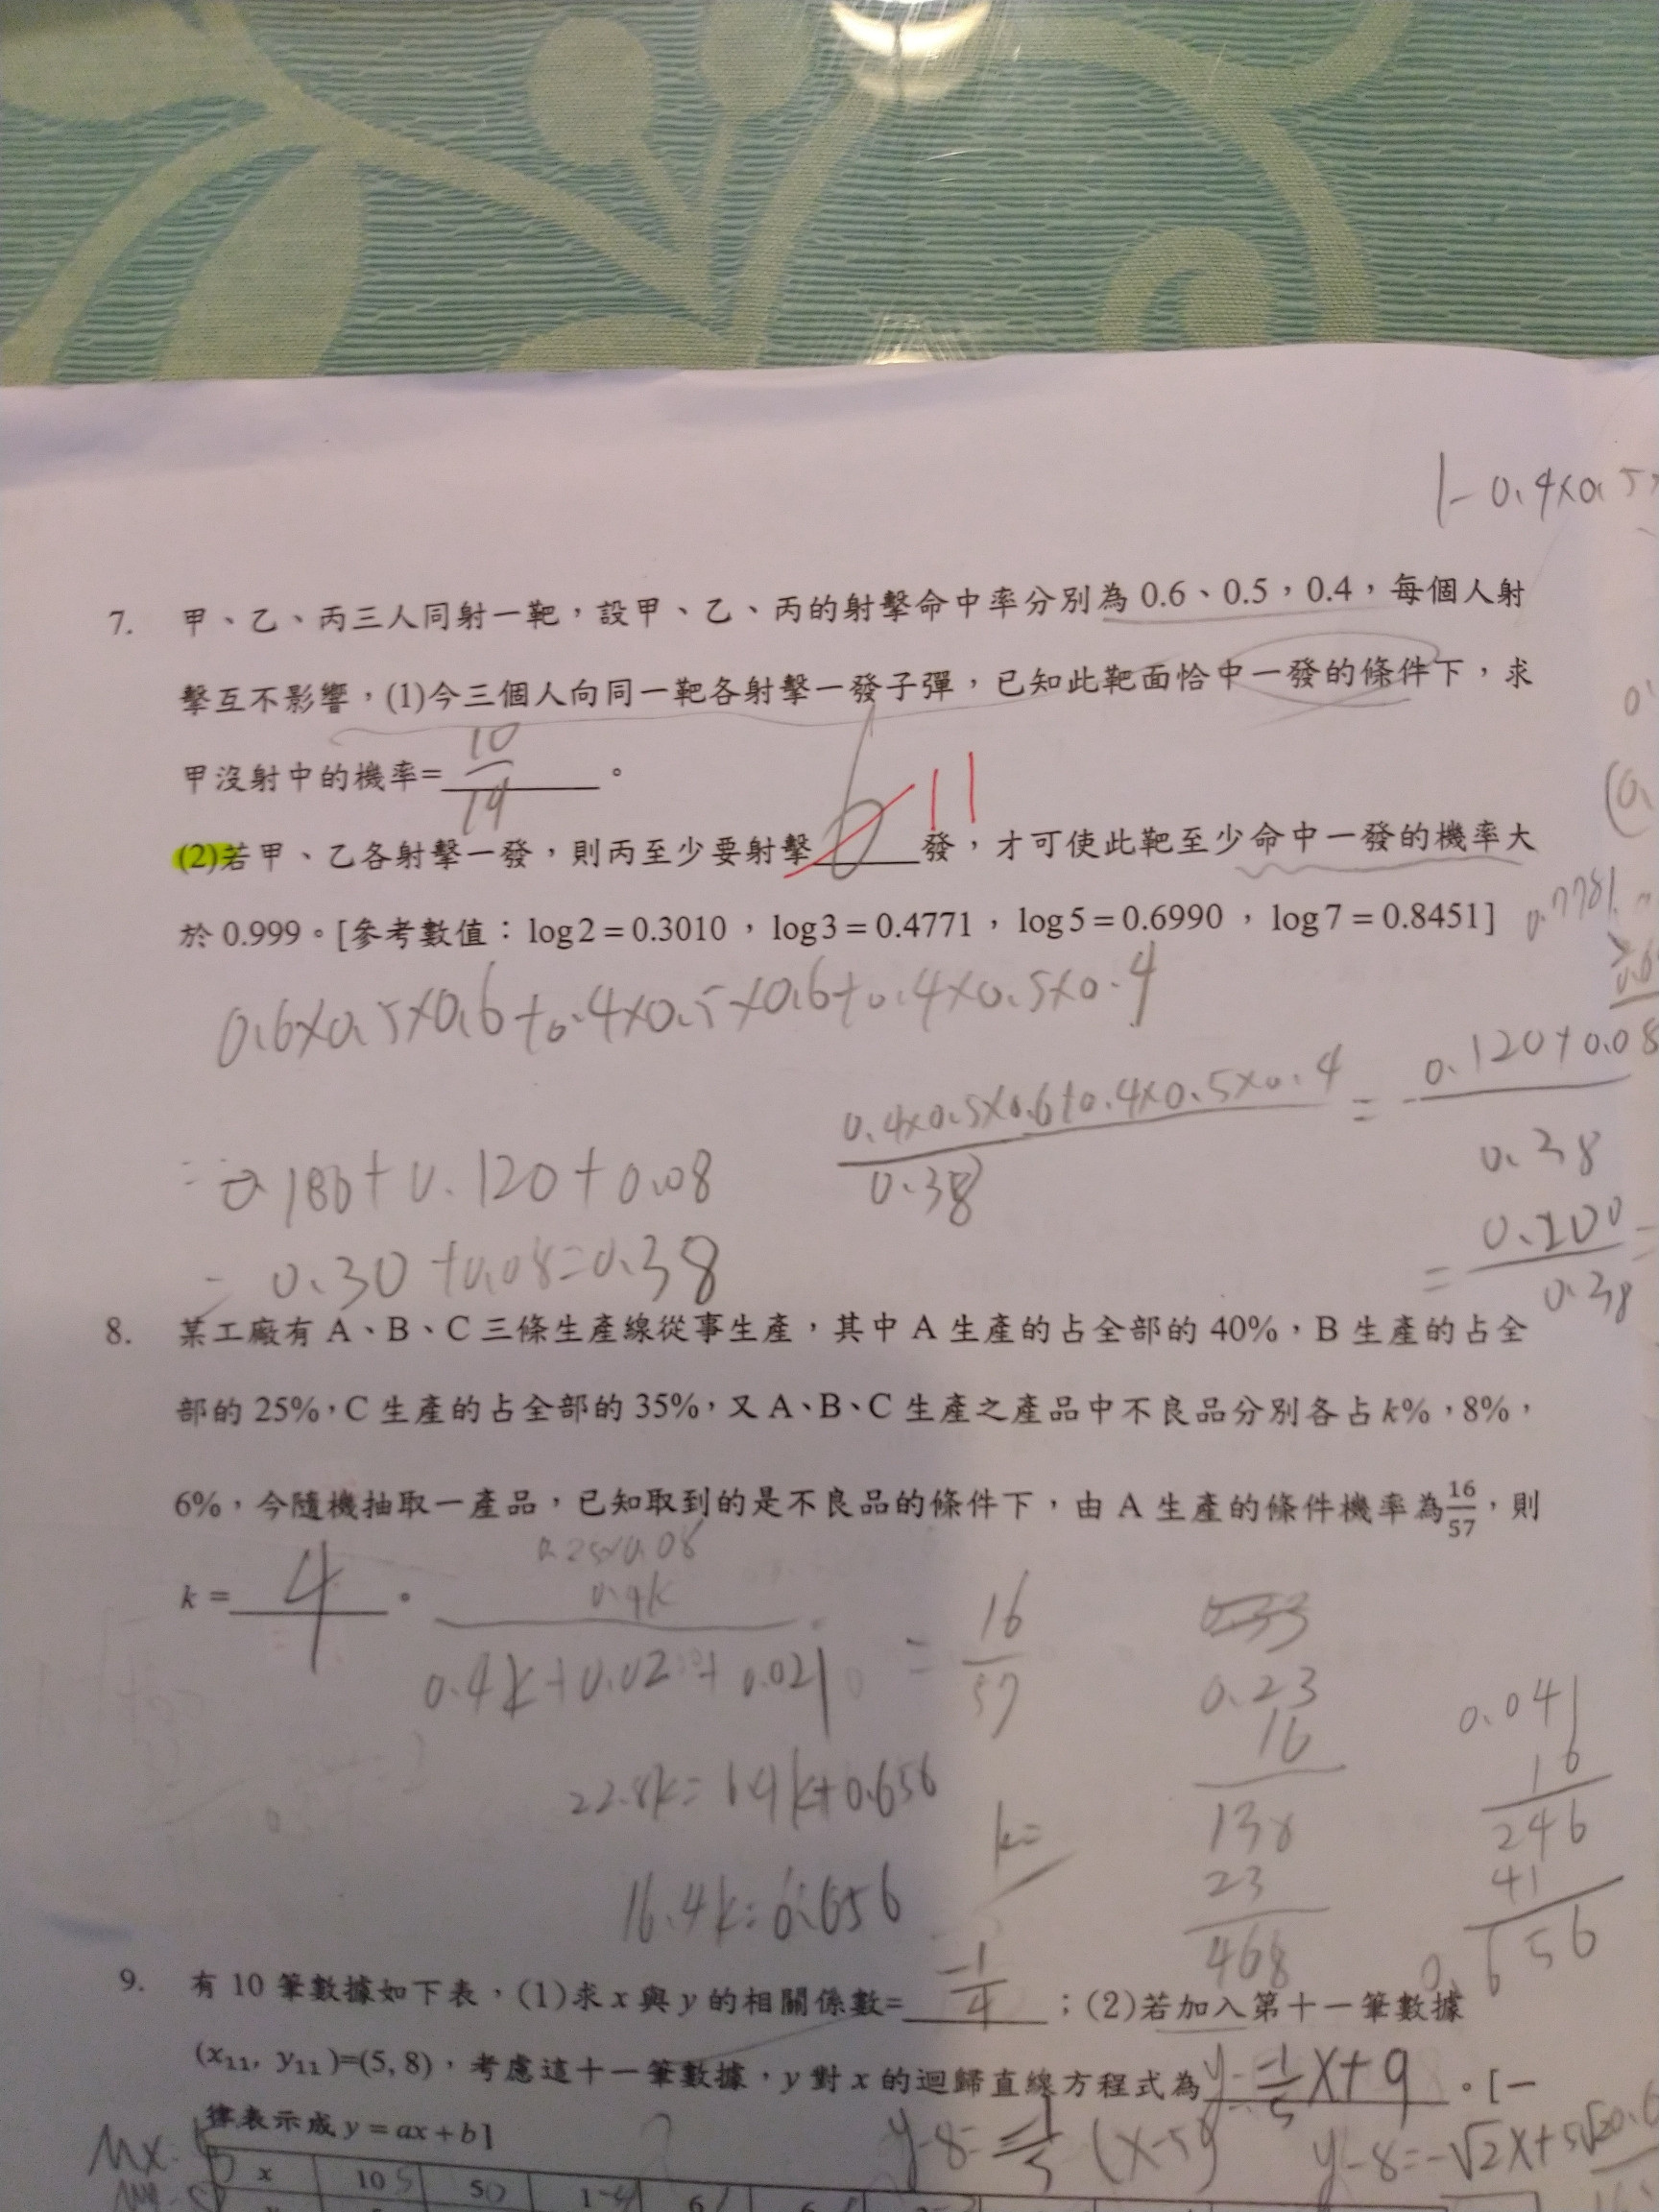 1-0.4×0.5
7. 甲、乙、丙三人同射一靶，設甲、乙、丙的射擊命中率分別為 0.6、0.5，0.4，每個人射
擊互不影響，(1)今三個人向同一靶各射擊一發子彈，已知此靶面恰中一發的條件下，求
甲沒射中的機率=10/19。
(2)若甲、乙各射擊一發，則丙至少要射擊 6 11 發，才可使此靶至少命中一發的機率大
於 0.999。[參考數值：log2=0.3010，log3=0.4771，log5=0.6990，log7=0.8451]
0.6×0.5×0.6+0.4×0.5×0.6+0.4×0.5×0.4
0.4×0.5×0.6+0.4×0.5×0.4/0.38 = 0.120+0.08/0.38
=0.180+0.120+0.08
= 0.200/0.38 =
= 0.30+0.08=0.38
8. 某工廠有 A、B、C 三條生產線從事生產，其中 A 生產的占全部的 40%，B 生產的占全
部的 25%，C 生產的占全部的 35%，又 A、B、C 生產之產品中不良品分別各占 k%，8%，
6%，今隨機抽取一產品，已知取到的是不良品的條件下，由 A 生產的條件機率為16/57，則
k=4。
0.25×0.08
0.4k/0.4k+0.02+0.021 = 16/57
0.23
16
138
23
468
0.041
16
246
41
0.656
22.8k=6.4k+0.656
k=
16.4k=0.656
9. 有 10 筆數據如下表，(1)求 x 與 y 的相關係數=-1/4；(2)若加入第十一筆數據
(x11, y11)=(5, 8)，考慮這十一筆數據，y 對 x 的迴歸直線方程式為y=-1/5x+9。[一
律表示成 y=ax+b]
y-8=-1/5(x-5)
x 10 5 1 6